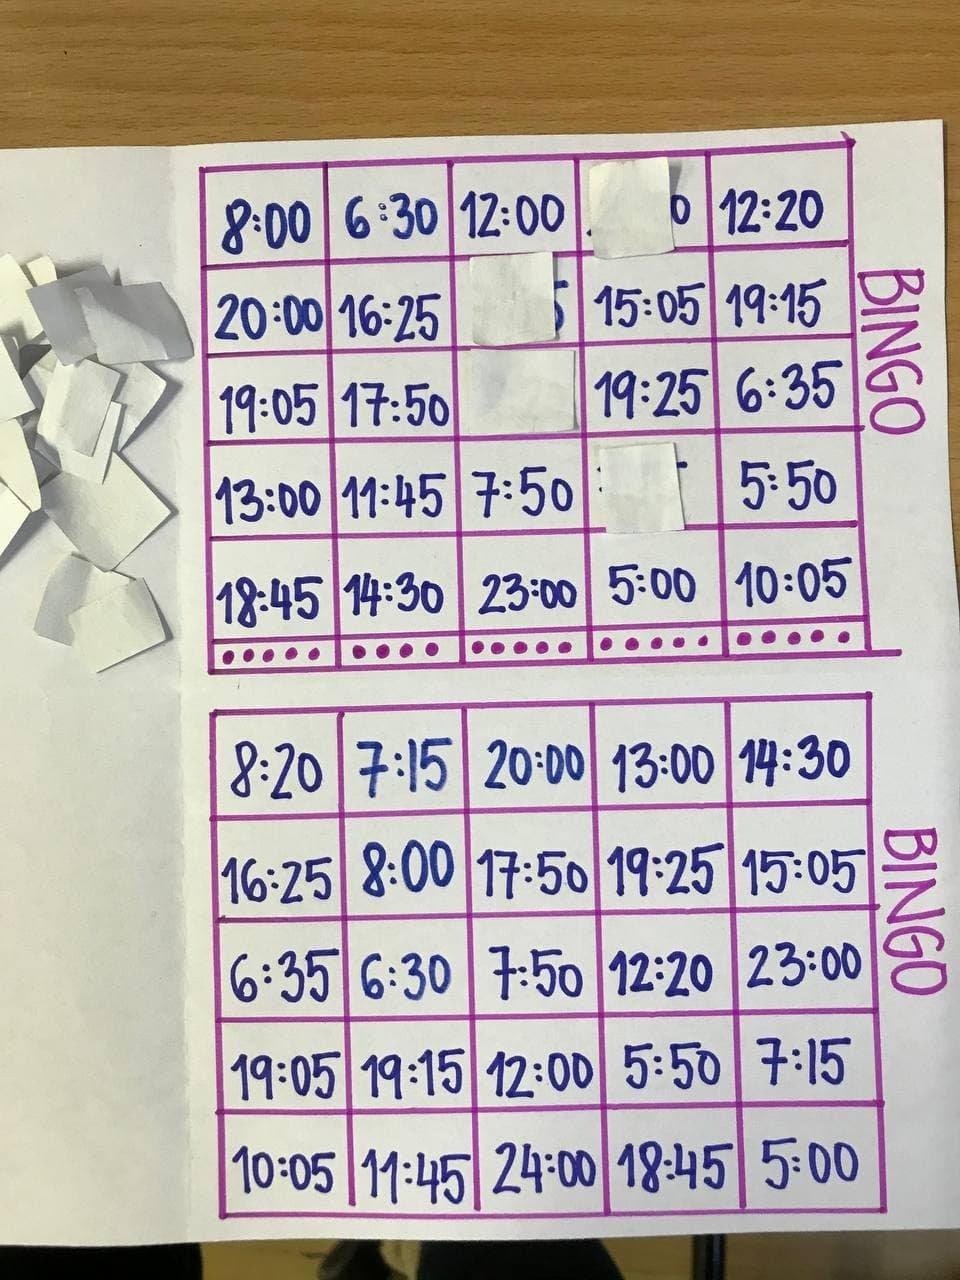 8:00 6:30 12:00 12:20
20:00 16:25 15:05 19:15
19:05 17:50 19:25 6:35
13:00 11:45 7:50 5:50
18:45 14:30 23:00 5:00 10:05
BINGO
8:20 7:15 20:00 13:00 14:30
16:25 8:00 17:50 19:25 15:05
6:35 6:30 7:50 12:20 23:00
19:05 19:15 12:00 5:50 7:15
10:05 11:45 24:00 18:45 5:00
BINGO